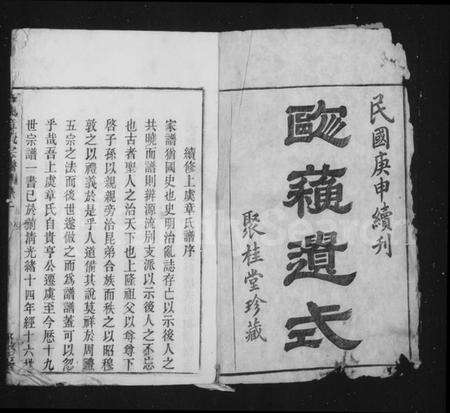 民國庚申續刊
歐蘓遺式
聚桂堂珍藏
續修上虞章氏譜序
家譜猶國史也史明治亂誌存亡以示後人之
共曉而譜則辨源流别支派以示後人之不忘
也古者聖人之治天下也上隆祖父以尊尊下
啓子孫以親親旁治昆弟合族而秩之以昭穆
敦之以禮義於是乎人道備其說莫祥於周禮
五宗之法而後世遂倣之而爲譜譜蓋可以忽
乎哉吾上虞章氏自貴亨公遷虞至今歷十九
世宗譜一書已於前清光緒十四年經十六世